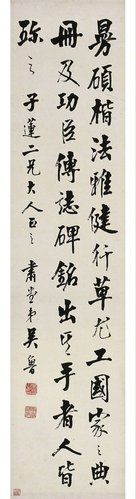 曼碩楷法雅健行草尤工國家之典
冊及功臣傳誌碑銘出其手者人皆
珎之 子蓮二兄大人正之 肅堂弟吳魯